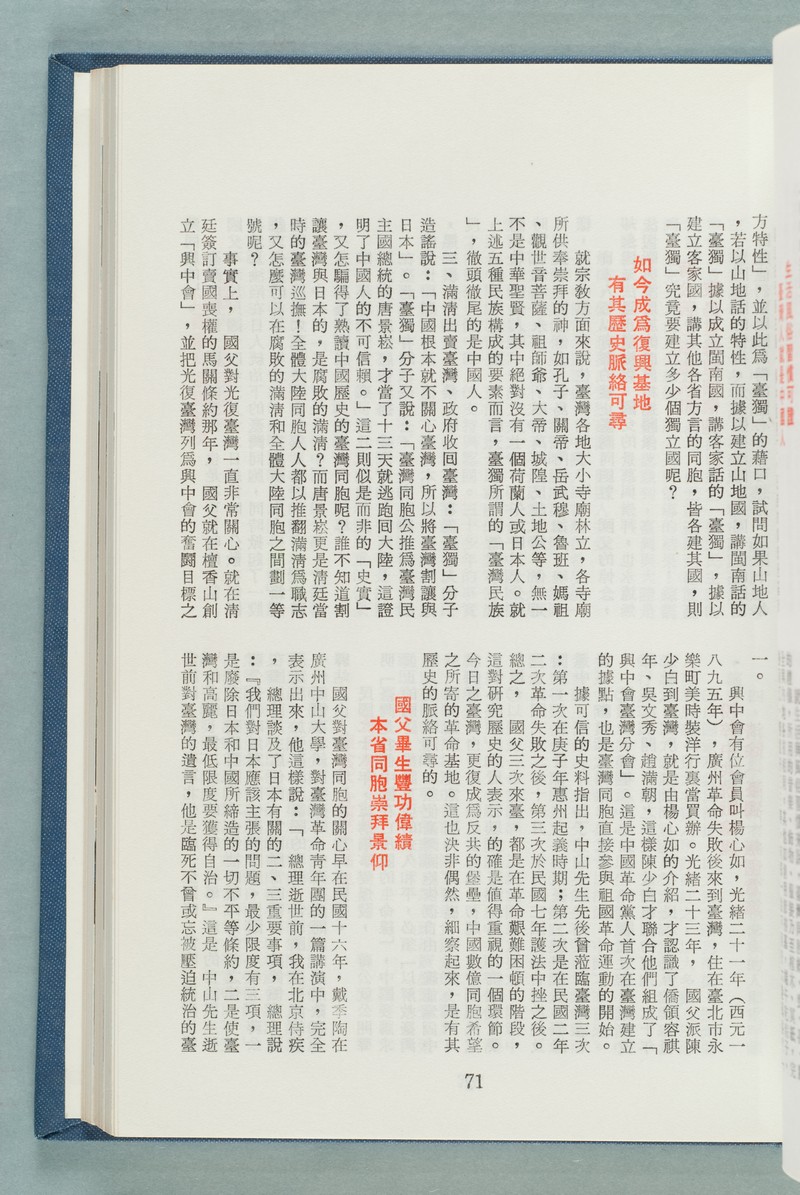 方特性」，並以此爲「臺獨」的藉口，試問如果山地人
，若以山地話的特性，而據以建立山地國，講閩南話的
「臺獨」據以成立閩南國，講客家話的「臺獨」，據以
建立客家國，講其他各省方言的同胞，皆各建其國，則
「臺獨」究竟要建立多少個獨立國呢？
如今成爲復興基地
有其歷史脈絡可尋
就宗教方面來說，臺灣各地大小寺廟林立，各寺廟
所供奉崇拜的神，如孔子、關帝、岳武穆、魯班、媽祖
、觀世音菩薩、祖師爺、大帝、城隍、土地公等，無一
不是中華聖賢，其中絕對沒有一個荷蘭人或日本人。就
上述五種民族構成的要素而言，臺獨所謂的「臺灣民族
」，徹頭徹尾的是中國人。
三、滿清出賣臺灣、政府收回臺灣：「臺獨」分子
造謠說：「中國根本就不關心臺灣，所以將臺灣割讓與
日本」。「臺獨」分子又說：「臺灣同胞公推爲臺灣民
主國總統的唐景崧，才當了十三天就逃跑回大陸，這證
明了中國人的不可信賴。」這二則似是而非的「史實」
，又怎騙得了熟讀中國歷史的臺灣同胞呢？誰不知道割
讓臺灣與日本的，是腐敗的滿清？而唐景崧更是清廷當
時的臺灣巡撫！全體大陸同胞人人都以推翻滿清爲職志
，又怎麼可以在腐敗的滿清和全體大陸同胞之間劃一等
號呢？
事實上，　國父對光復臺灣一直非常關心。就在清
廷簽訂賣國喪權的馬關條約那年，　國父就在檀香山創
立「興中會」，並把光復臺灣列爲興中會的奮鬪目標之
一。
興中會有位會員叫楊心如，光緒二十一年（西元一
八九五年），廣州革命失敗後來到臺灣，住在臺北市永
樂町美時裝洋行裏當買辦。光緒二十三年，　國父派陳
少白到臺灣，就是由楊心如的介紹，才認識了僑領容祺
年、吳文秀、趙滿朝，這樣陳少白才聯合他們組成了「
興中會臺灣分會」。這是中國革命黨人首次在臺灣建立
的據點，也是臺灣同胞直接參與祖國革命運動的開始。
據可信的史料指出，中山先生先後曾蒞臨臺灣三次
：第一次在庚子年惠州起義時期；第二次是在民國二年
二次革命失敗之後，第三次於民國七年護法中挫之後。
總之，　國父三次來臺，都是在革命艱難困頓的階段，
這對研究歷史的人表示，的確是值得重視的一個環節。
今日之臺灣，更復成爲反共的堡壘，中國數億同胞希望
之所寄的革命基地。這也決非偶然，細察起來，是有其
歷史的脈絡可尋的。
國父畢生豐功偉績
本省同胞崇拜景仰
國父對臺灣同胞的關心早在民國十六年，戴季陶在
廣州中山大學，對臺灣革命青年團的一篇講演中，完全
表示出來，他這樣說：「　總理逝世前，我在北京侍疾
，　總理談及了日本有關的二、三重要事項，　總理說
：『我們對日本應該主張的問題，最少限度有三項，一
是廢除日本和中國所締造的一切不平等條約，二是使臺
灣和高麗，最低限度要獲得自治。』這是　中山先生逝
世前對臺灣的遺言，他是臨死不曾或忘被壓迫統治的臺
71